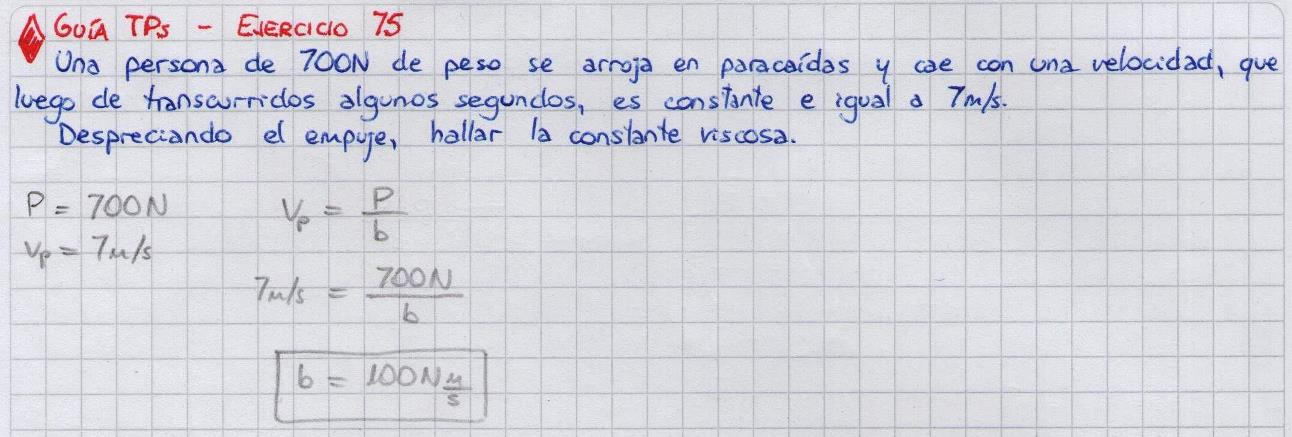 GUÍA TPs - EJERCICIO 75
Una persona de 700N de peso se arroja en paracaídas y cae con una velocidad, que
luego de transcurridos algunos segundos, es constante e igual a 7m/s.
Despreciando el empuje, hallar la constante viscosa.
P = 700N
Vp = 7m/s
Vp = P/b
7m/s = 700N/b
b = 100N m/s